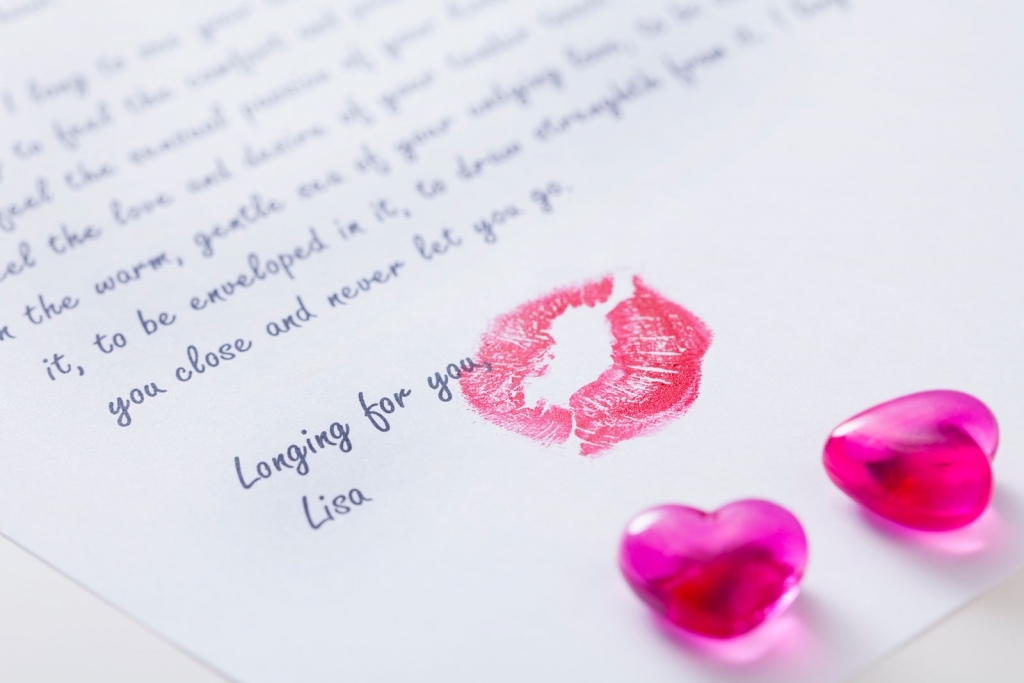 I long to
to feel the comfort and
feel the sensual passion of your
feel the love and desire of your tender
the warm, gentle sea of your undying love, to be
it, to be enveloped in it, to draw strength from it. I
you close and never let you go.
Longing for you,
Lisa